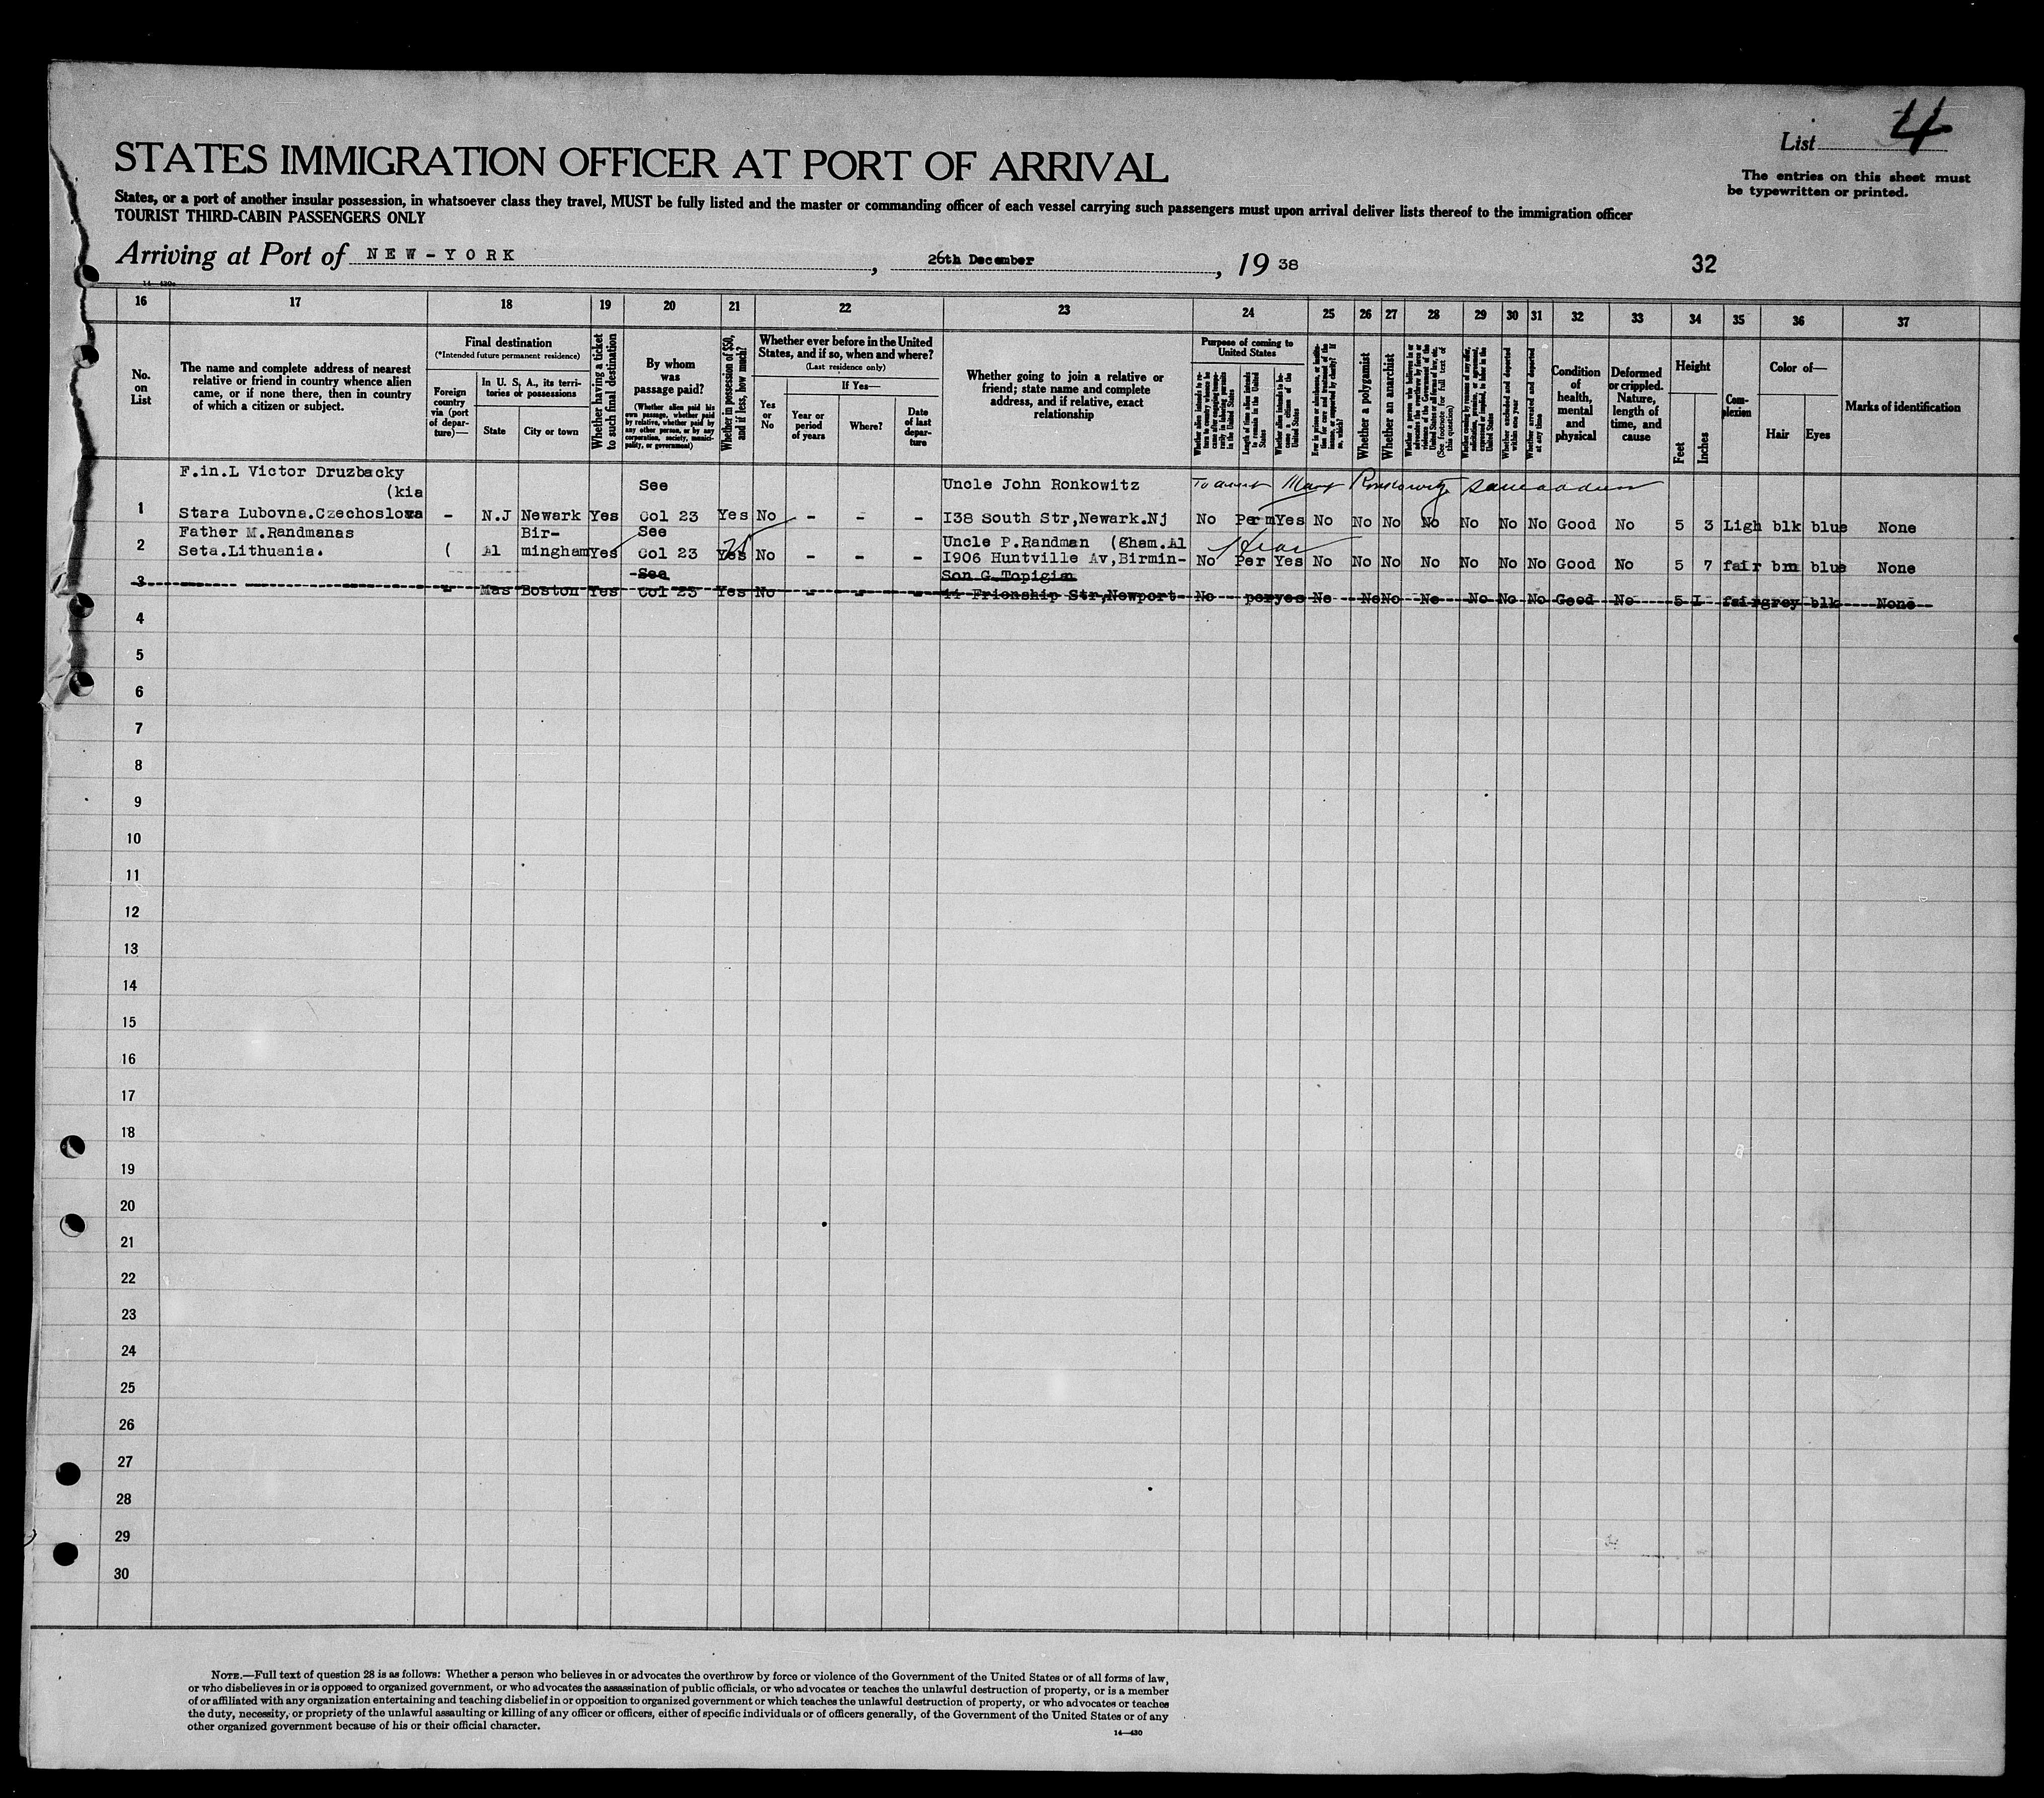 List 4
The entries on this sheet must
be typewritten or printed.
STATES IMMIGRATION OFFICER AT PORT OF ARRIVAL
States, or a port of another insular possession, in whatsoever class they travel, MUST be fully listed and the master or commanding officer of each vessel carrying such passengers must upon arrival deliver lists thereof to the immigration officer
TOURIST THIRD-CABIN PASSENGERS ONLY
Arriving at Port of NEW-YORK, 26th December, 19 38
32
16 17 18 19 20 21 22 23 24 25 26 27 28 29 30 31 32 33 34 35 36 37
No.
on
List
The name and complete address of nearest
relative or friend in country whence alien
came, or if none there, then in country
of which a citizen or subject.
Final destination
(*Intended future permanent residence)
Foreign
country
via (port
of depar-
ture)—
In U. S. A., its terri-
tories or possessions
State
City or town
Whether having a ticket
to such final destination
By whom
was
passage paid?
(Whether alien paid his
own passage, whether paid
by relative, whether paid by
any other person, or by any
corporation, society, munici-
pality, or government)
Whether in possession of $50,
and if less, how much?
Whether ever before in the United
States, and if so, when and where?
(Last residence only)
Yes
or
No
If Yes—
Year or
period
of years
Where?
Date
of last
depar-
ture
Whether going to join a relative or
friend; state name and complete
address, and if relative, exact
relationship
Purpose of coming to
United States
Whether alien intends to re-
turn to country whence he
came after engaging tempo-
rarily in laboring pursuits
in the United States
Length of time alien intends
to remain in the United
States
Whether alien intends to be-
come a citizen of the
United States
Ever in prison or almshouse, or institu-
tion for care and treatment of the
insane, or supported by charity? If
so, which?
Whether a polygamist
Whether an anarchist
Whether a person who believes in or
advocates the overthrow by force or
violence of the Government of the
United States or all forms of law, etc.
(See footnote for full text of
this question)
Whether coming by reason of any offer,
solicitation, promise, or agreement,
expressed or implied, to labor in the
United States
Whether excluded and deported
within one year
Whether arrested and deported
at any time
Condition
of
health,
mental
and
physical
Deformed
or crippled.
Nature,
length of
time, and
cause
Height
Feet
Inches
Com-
plexion
Color of—
Hair
Eyes
Marks of identification
F.in.L Victor Druzbacky
(kia
See
Uncle John Ronkowitz
To aunt Mary Ronkowitz same address
1 Stara Lubovna.Czechoslova - N.J Newark Yes Col 23 Yes No - - - I38 South Str,Newark.Nj No Perm Yes No No No No No No No Good No 5 3 Ligh blk blue None
Father M.Randmanas Bir- See Uncle P.Randman (gham.Al
2 Seta.Lithuania. ( Al mingham Yes Col 23 Yes No - - - I906 Huntville Av,Birmin- No Per Yes No No No No No No No Good No 5 7 fair bm blue None
See Son G Topigian
3 - Mas Boston Yes Col 23 Yes No - - - 11 Frienship Str,Newport No per yes No No No No No No No Good No 5 I fair grey blk None
4
5
6
7
8
9
10
11
12
13
14
15
16
17
18
19
20
21
22
23
24
25
26
27
28
29
30
NOTE.—Full text of question 28 is as follows: Whether a person who believes in or advocates the overthrow by force or violence of the Government of the United States or of all forms of law,
or who disbelieves in or is opposed to organized government, or who advocates the assassination of public officials, or who advocates or teaches the unlawful destruction of property, or is a member
of or affiliated with any organization entertaining and teaching disbelief in or opposition to organized government or which teaches the unlawful destruction of property, or who advocates or teaches
the duty, necessity, or propriety of the unlawful assaulting or killing of any officer or officers, either of specific individuals or of officers generally, of the Government of the United States or of any
other organized government because of his or their official character.
14—430